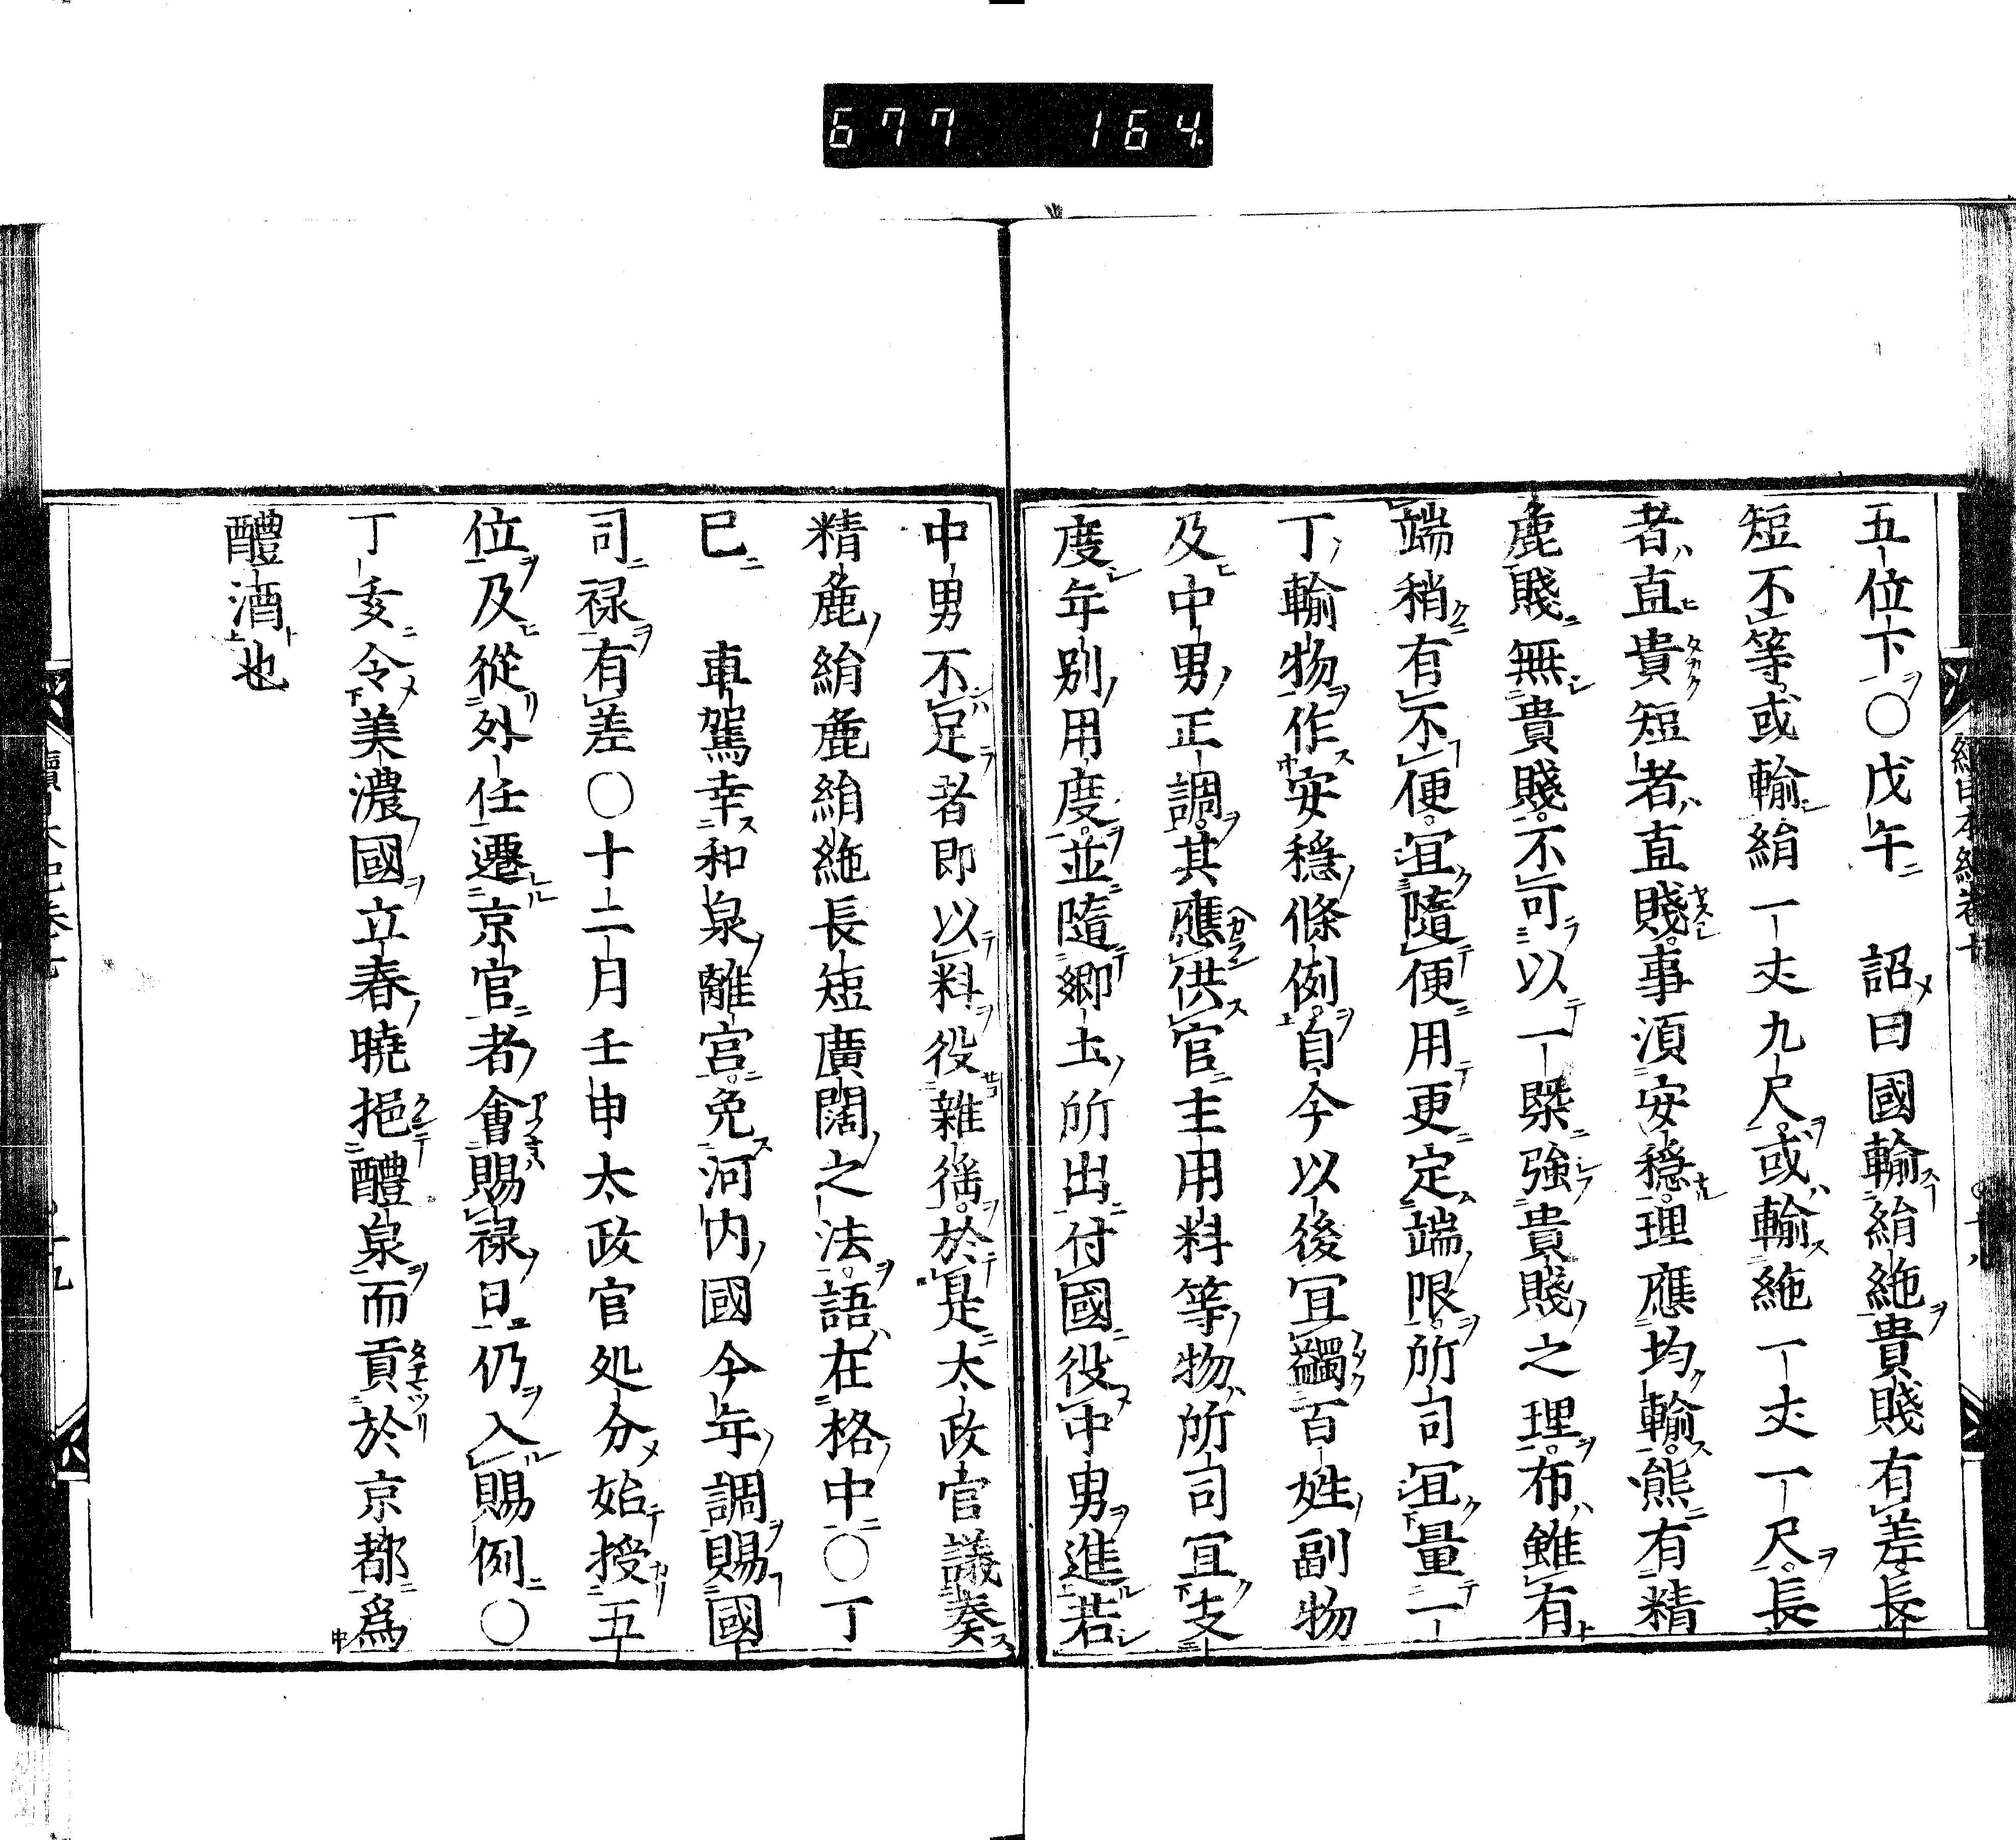 677 164.
五位下○戊午　詔曰國輸絹絁貴賤有差長
短不等或輸絹一丈九尺或輸絁一丈一尺長
者直貴短者直賤事湏安穩理應均輸熊有精
麁賤無貴賤不可以一槩強貴賤之理布雖有
端稍有不便宜隨便用更定端限所司宜量一
丁輸物作安穩條例自今以後宜蠲百姓副物
及中男正調其應供官主用料等物所司宜支
度年別用度並隨鄉土所出付國役中男進若
中男不足者即以料役雜徭於是太政官議奏
精麁絹麁絹絁長短廣闊之法語在格中○丁
巳　車駕幸和泉離宮免河内國今年調賜國
司禄有差○十二月壬申太政官処分始授五
位及從外任遷京官者會賜禄日仍入賜例○
丁亥令美濃國立春曉挹醴泉而貢於京都爲
醴酒也